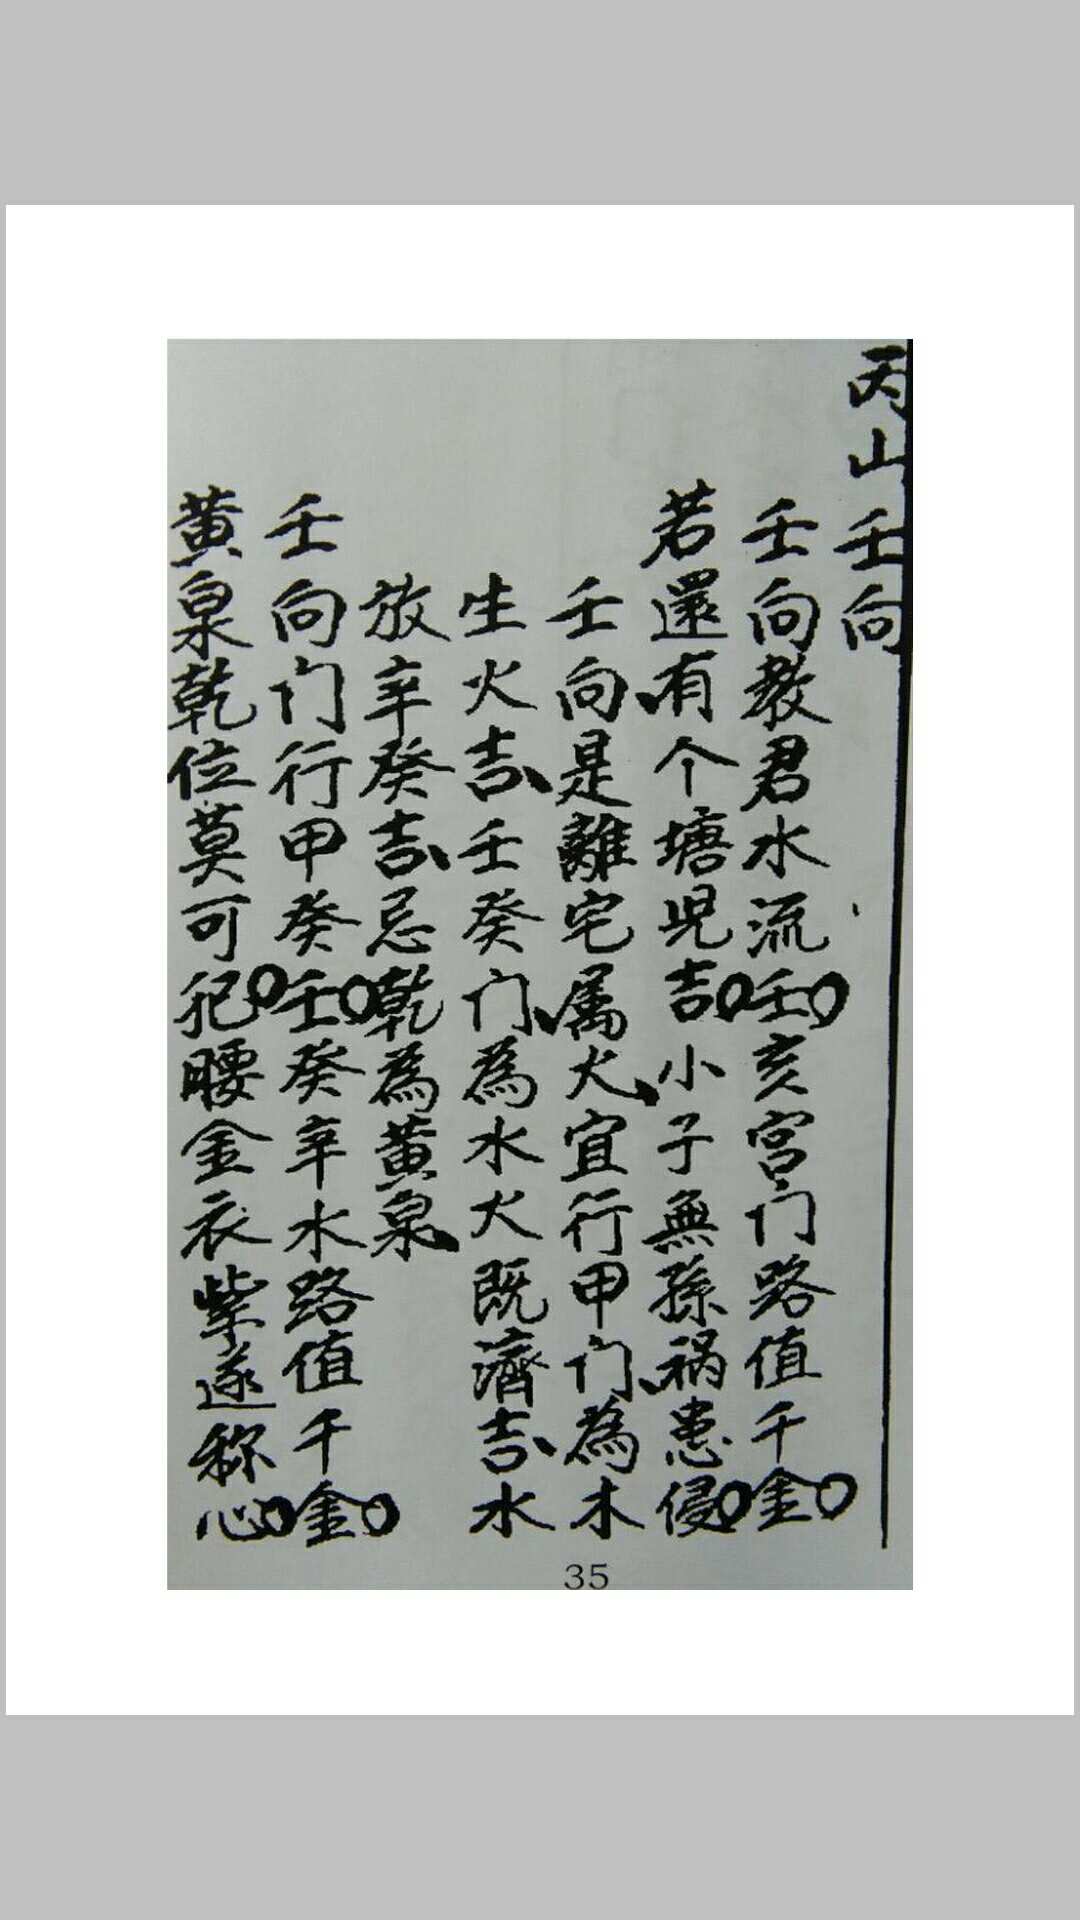 丙山壬向
壬向教君水流壬。亥宮门路值千金。
若還有个塘児吉。小子無孫祸患侵。
壬向是離宅属火、宜行甲门、為木
生火吉、壬癸门、為水火既濟吉、水
放辛癸吉、忌乾為黄泉、
壬向门行甲癸壬。癸辛水路值千金。
黄泉乾位莫可犯。腰金衣紫遂称心。
35